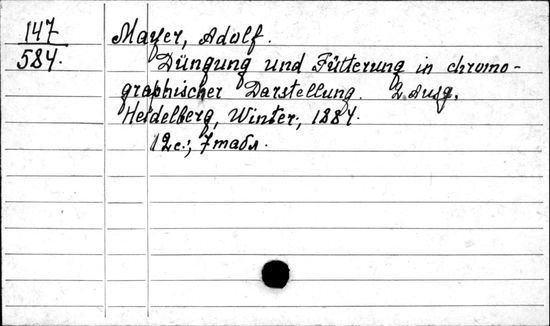 147
584.
Mayer, Adolf.
Düngung und Fütterung in chromo-
graphischer Darstellung. 2. Ausg.
Heidelberg, Winter, 1884.
12 c., 7 табл.